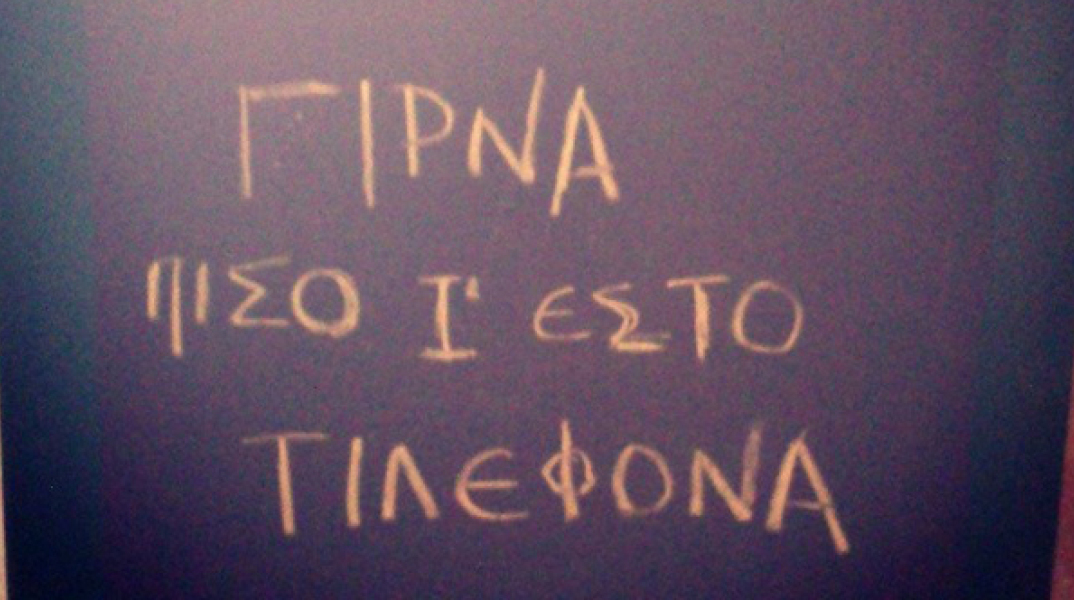 ΓΙΡΝΑ
ΠΙΣΟ Ι' ΕΣΤΟ
ΤΙΛΕΦΟΝΑ